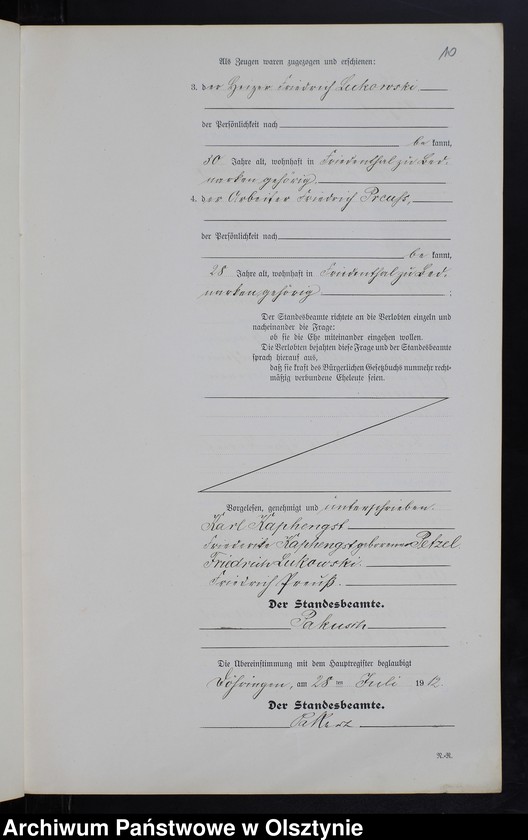 10
Als Zeugen waren zugezogen und erschienen:
3. der Heizer Friedrich Lukowski
der Persönlichkeit nach
be kannt,
50 Jahre alt, wohnhaft in Friedenthal zu Bed-
narken gehörig.
4. der Arbeiter Friedrich Preuß,
der Persönlichkeit nach
be kannt,
28 Jahre alt, wohnhaft in Friedenthal zu Bed-
narken gehörig :
Der Standesbeamte richtete an die Verlobten einzeln und
nacheinander die Frage:
ob sie die Ehe miteinander eingehen wollen.
Die Verlobten bejahten diese Frage und der Standesbeamte
sprach hierauf aus,
daß sie kraft des Bürgerlichen Gesetzbuchs nunmehr recht-
mäßig verbundene Eheleute seien.
Vorgelesen, genehmigt und unterschrieben.
Karl Kaphengst
Friederike Kaphengst geborene Petzel
Friedrich Lukowski.
Friedrich Preuß.
Der Standesbeamte.
Die Übereinstimmung mit dem Hauptregister beglaubigt
Döhringen, am 28 ten Juli 1912.
Der Standesbeamte.
R.-R.
Archiwum Państwowe w Olsztynie